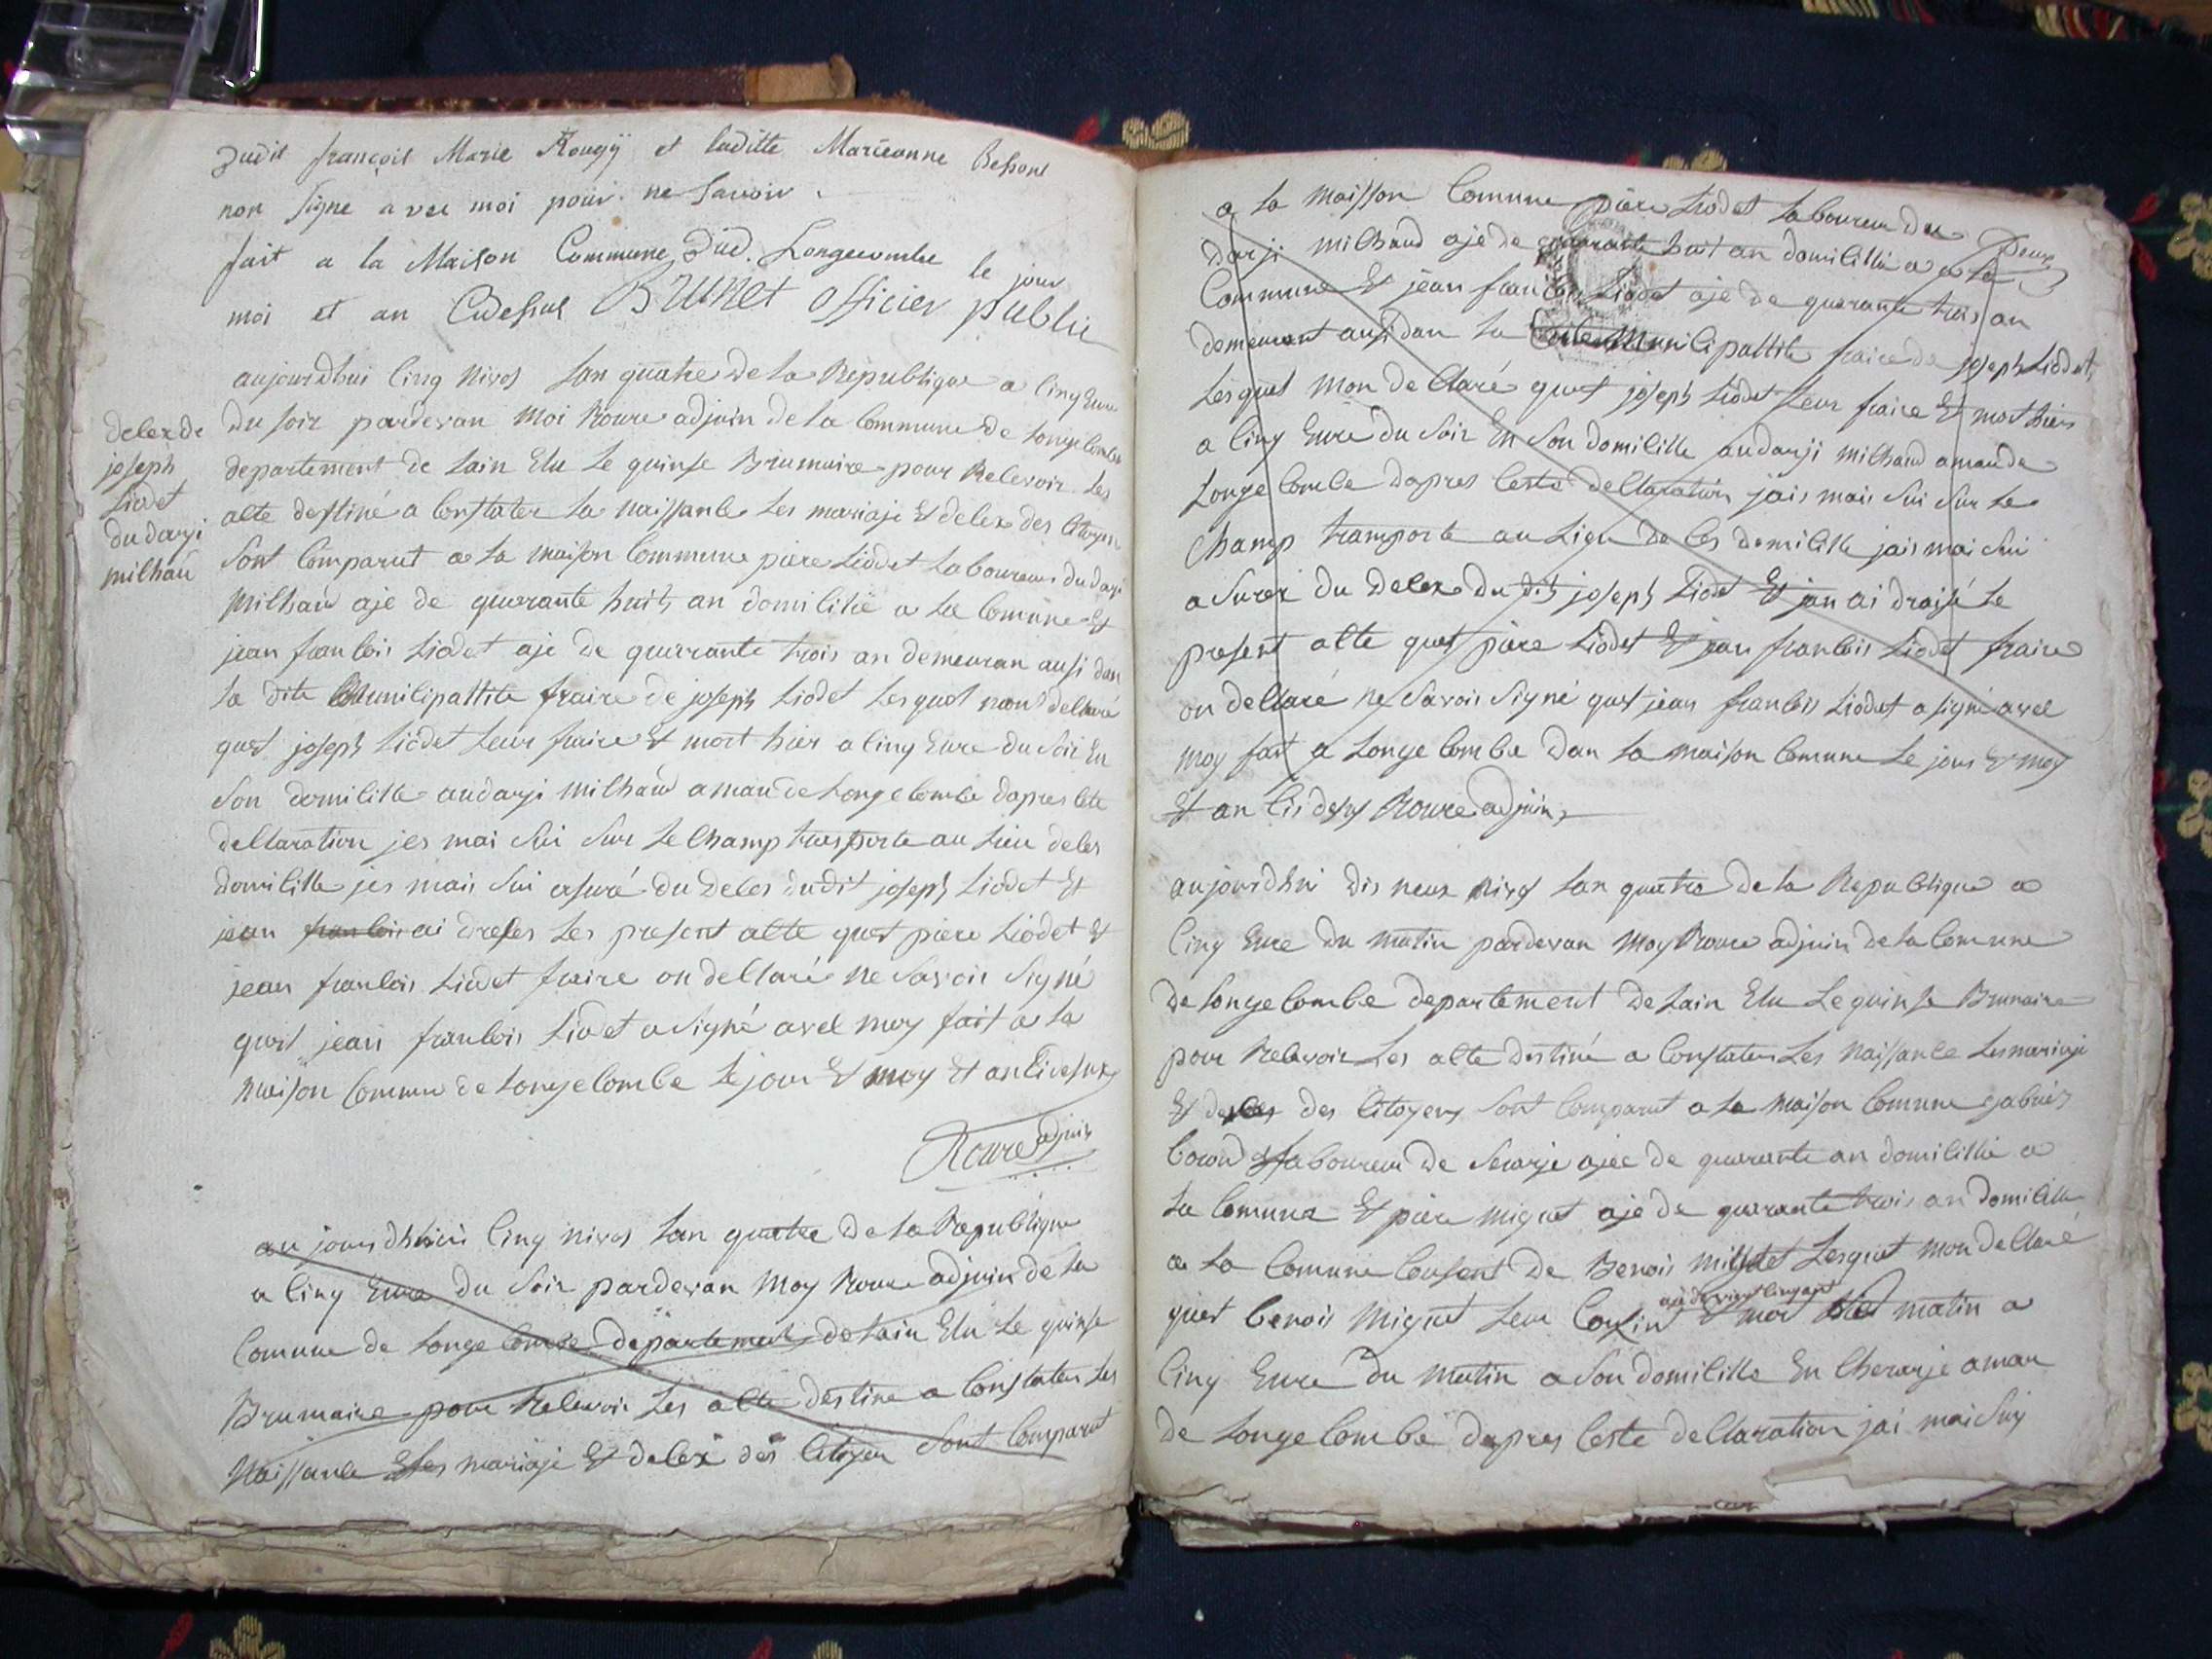 dudit françois Marie Rougÿ et laditte Marieanne Besson
non signe avec moi pour ne Savoir.
fait a la Maison Commune dud. Longecombe le jour
moi et an Cidessus BRUNet officier public
delex de
joseph
Liodet
du darji
milhau
aujourdhui cinq Nivos lan quatre de la Republique a cinq Eure
du soir pardevan moi Roure adjuin de la commune de longe combe
departement de lain Elu le quinse Brumaire pour Relevoir les
acte destiné a Constater la naissance les mariaje Et delex des citoyen
sont Comparut a la maison Commune piere Liodet laboureur du darji
milhau aje de quarante huit an domicilié a la comune Et
jean francois Liodet aje de quarrante trois an demeuran ausi dan
la dite Municipallite fraire de joseph Liodet lesquel mont declaré
quet joseph Liodet leur fraire Et mort hier a cinq Eure du soir En
son domicille audarji milhau aman de Longecombe dapres cete
declaration jes mai sui sur le champ transporte au lieu de ces
domicille jes mais sui asuré du deces dudit joseph Liodet Et
jean francois ai dreses les present acte quet piere Liodet Et
jean francois Liodet fraire on declaré ne savoir signé
quet jean francois Liodet a signé avec moy fait a la
maison Commune de Longecombe le jour Et moy Et an cidesus
Roure adjuin
aujourdhuii cinq nivos lan quatre de la Republique
a cinq Eure du soir pardevan moy Roure adjuin de la
Comune de longe combe departement de lain Elu le quinse
Brumaire pour Relevoir les acte destine a Constater les
Naissance Et les mariaje Et delex des citoyen sont Comparut
a la maisson Commune piere Liodet laboureur du
Deux
darji milhaud aje de quarante huit an domicillié a la
Commune Et jean francois Liodet aje de quarante trois an
demeurant ausi dan la Municipallite fraire de joseph Liodet,
Lesquel mon declaré quet joseph Liodet leur fraire Et mort hier
a cinq Eure du soir En son domicille audarji milhaud aman de
Longe combe dapres ceste declaration jais mais sui sur le
champ transporte au Lieu de ces domicille jais mai sui
asurer du delex du dit joseph Liodet Et jan ai draisé le
present acte quet piere Liodet Et jean francois Liodet fraire
on declaré ne savoir signé quet jean francois Liodet a signé avec
moy fait a Longe combe dan la maison Comune le jour Et moy
Et an cidesus Roure adjuin
aujourdhui dis neuf nivos lan quatre de la Republique a
cinq Eure du matin pardevan moy Roure adjuin de la Comune
de longe combe departement de lain Elu le quinse Brumaire
pour Relevoir les acte destiné a Constater les naissance les mariaje
Et delex des citoyens sont Comparut a la maison Comune gabriel
laboureur de ajée de quarante an domicillié a
la Comune Et piere miguet aje de quarante trois an domicillié
a la Comune Cousent de Benois miguet Lesquet mon declaré
aje de vient cinq ant
quet benois Miguet leur Coxin Et mort matin a
cinq Eure du matin a son domicille En Cherarje aman
de Longe combe dapres ceste declaration jai mai suy